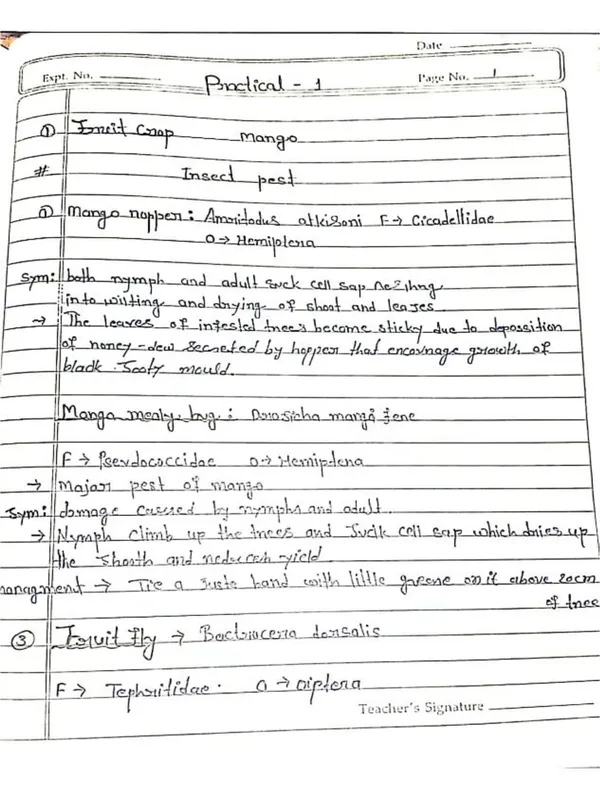 Date
Expt. No.
Page No. 1
Practical - 1
① Fruit Crop Mango
# Insect pest
① Mango hopper: Amritodus atkisoni F→ Cicadellidae
O→ Hemiptera
Sym: both nymph and adult suck cell sap
into wilting and drying of shoot and leaves
→ The leaves of infested trees become sticky due to deposition
of honey-dew secreted by hopper that encourage growth of
black Sooty mould.
Mango mealy bug: Drosicha
F→ Pseudococcidae O→ Hemiptera
→ Major pest of mango
Sym: damage caused by nymphs and adult.
→ Nymph climb up the trees and Suck cell sap which dries up
the shooth and reduces yield
managment → Tie a band with little on it above 20cm
of tree
③ Fruit fly → Bactrocera dorsalis
F→ Tephritidae. O→ Diptera
Teacher's Signature